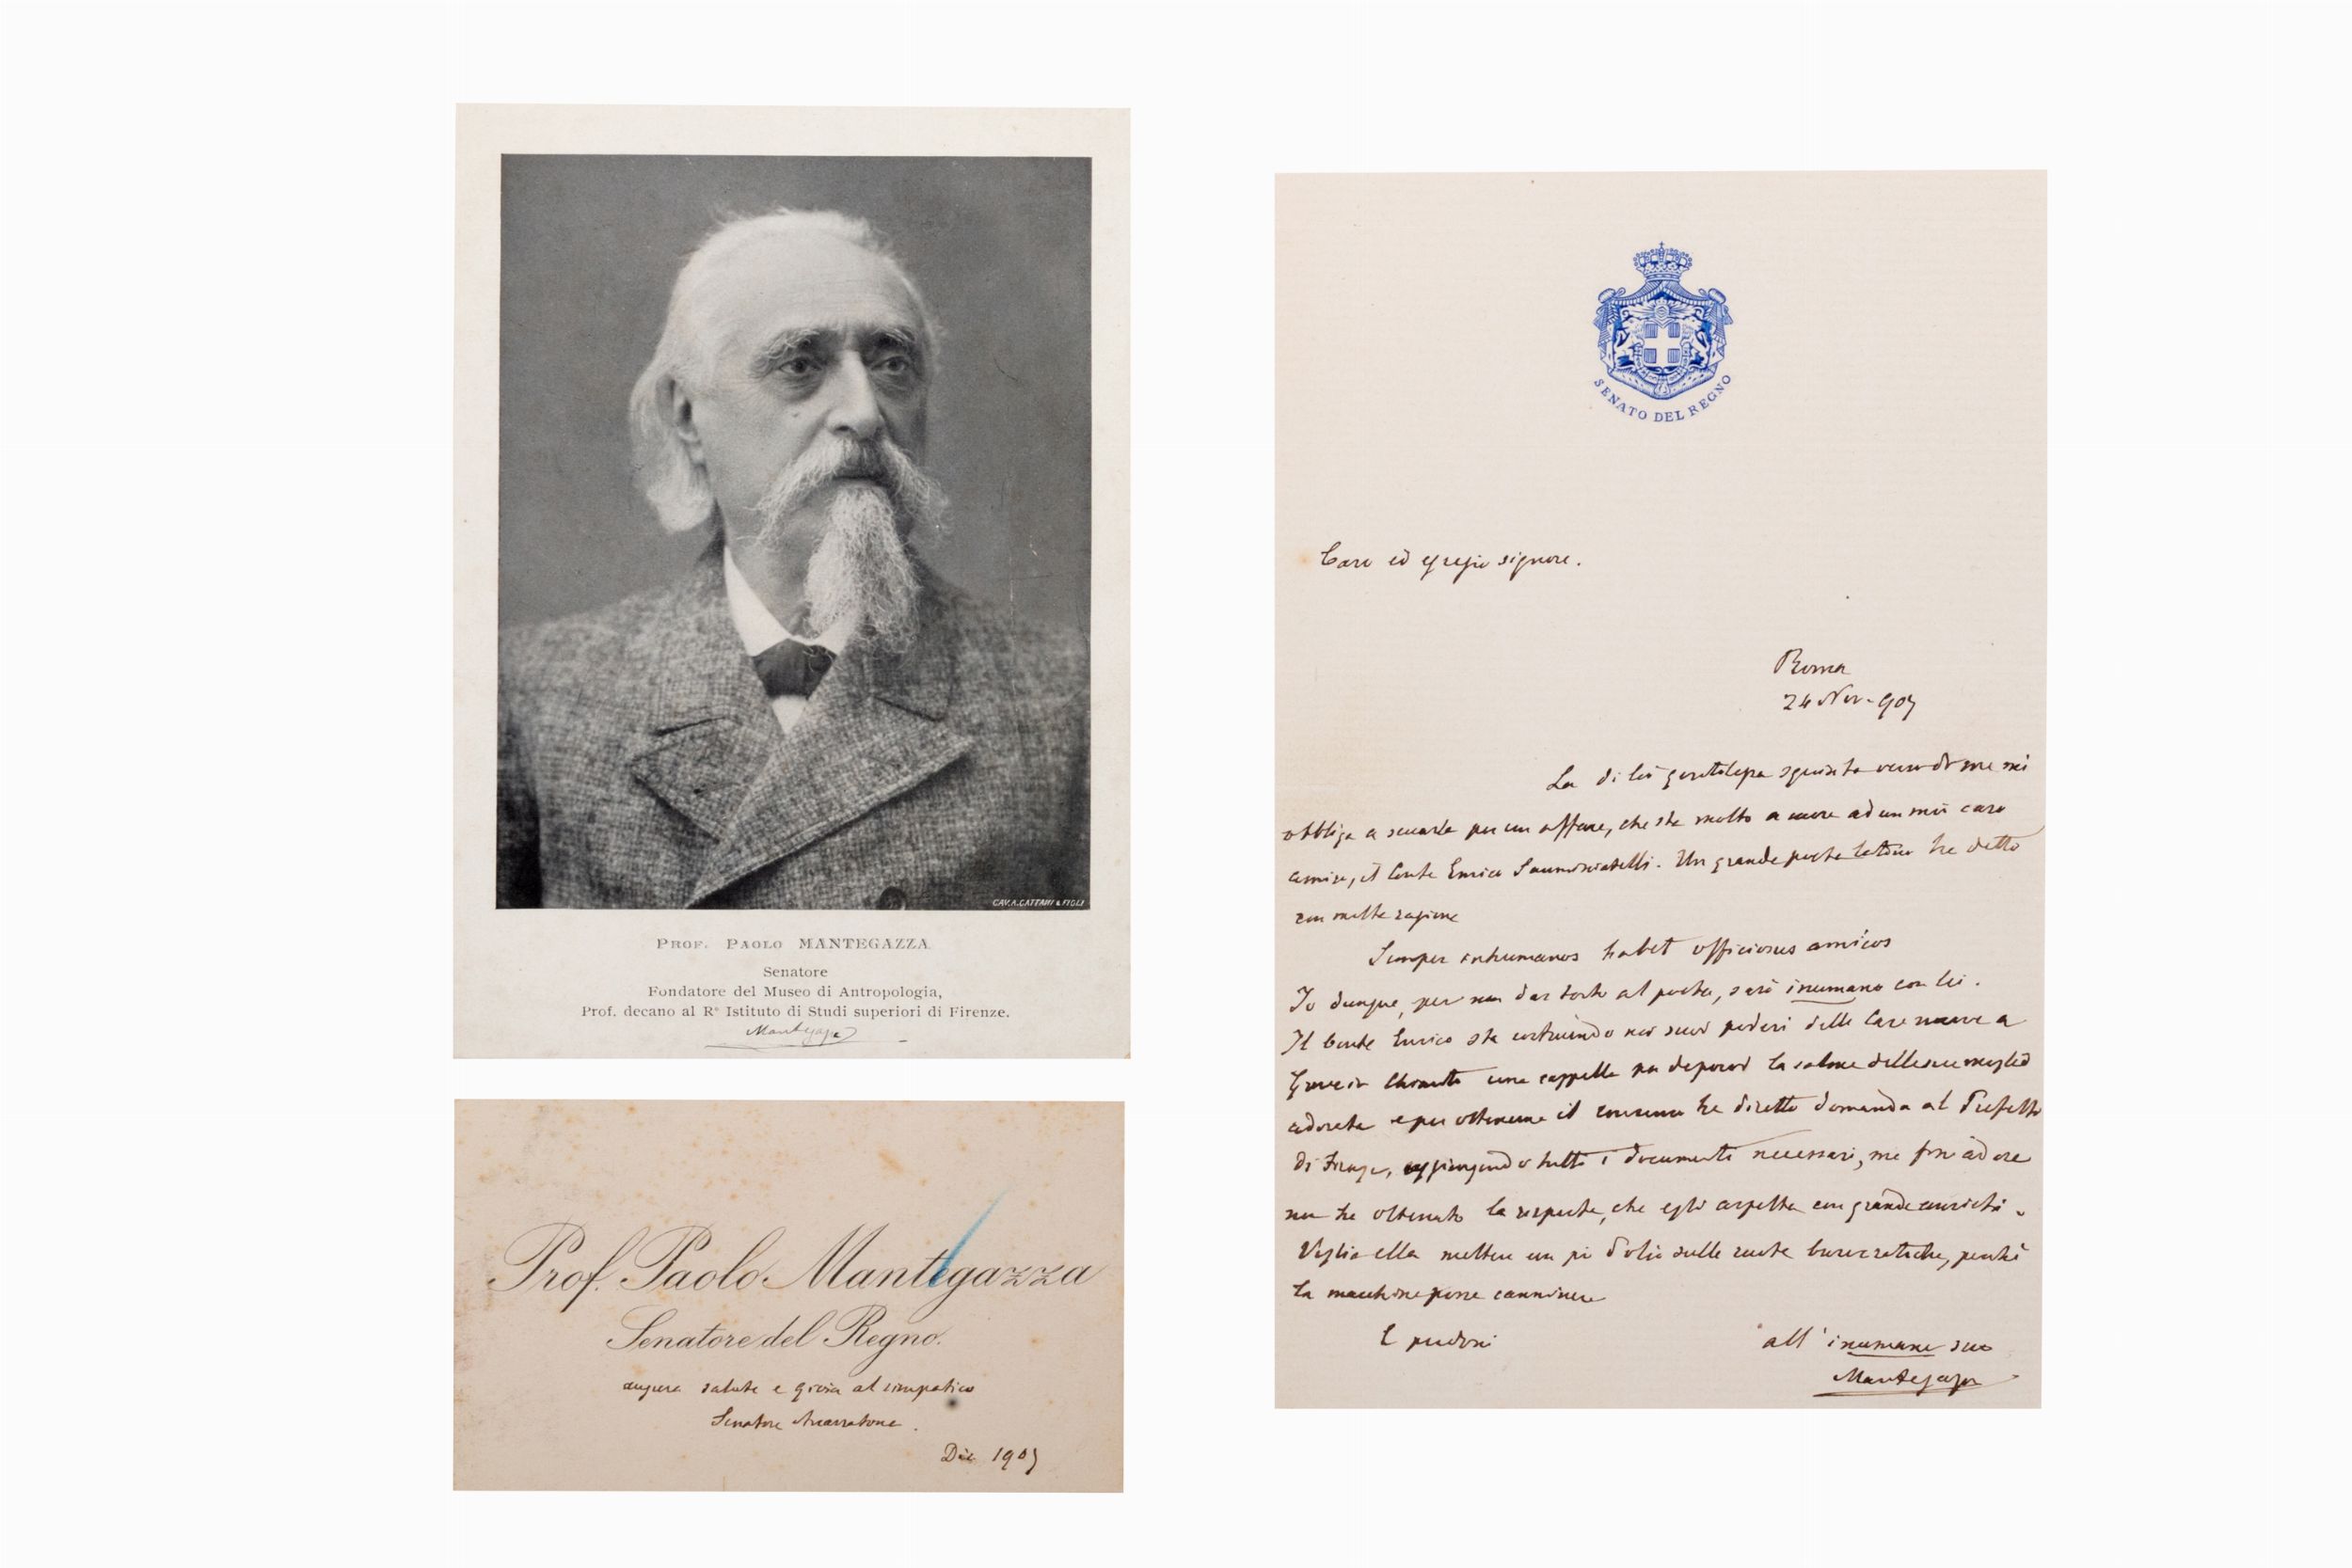 CAV. A. CATTANI & FIGLI
PROF. PAOLO MANTEGAZZA
Senatore
Fondatore del Museo di Antropologia,
Prof. decano al R° Istituto di Studi superiori di Firenze.
Mantegazza
Prof. Paolo Mantegazza
Senatore del Regno.
augura salute e gioia al simpatico
Senatore
Dic 1905
SENATO DEL REGNO
Caro ed egregio signore.
Roma
24 Nov. 905
La di lei gentilezza squisita verso di me mi
obbliga a seccarla per un affare, che sta molto a cuore ad un mio caro
amico, il Conte Enrico. Un grande poeta latino ha detto
con molta ragione
Semper inhumanos habet officiosus amicos
Io dunque, per non dar torto al poeta, sarò inumano con lei.
Il Conte Enrico sta costruendo nei suoi poderi delle Case nuove a
Greve in Chianti una cappella per deporvi la salma della sua moglie
adorata e per ottenerne il consenso ha diretto domanda al Prefetto
di Firenze, aggiungendo tutti i documenti necessari, ma finiad ora
non ha ottenuto la risposta, che egli aspetta con grande ansietà.
Voglia ella mettere un pò d'olio sulle ruote burocratiche, perchè
la macchina possa camminare
E perdoni
all'inumano suo
Mantegazza